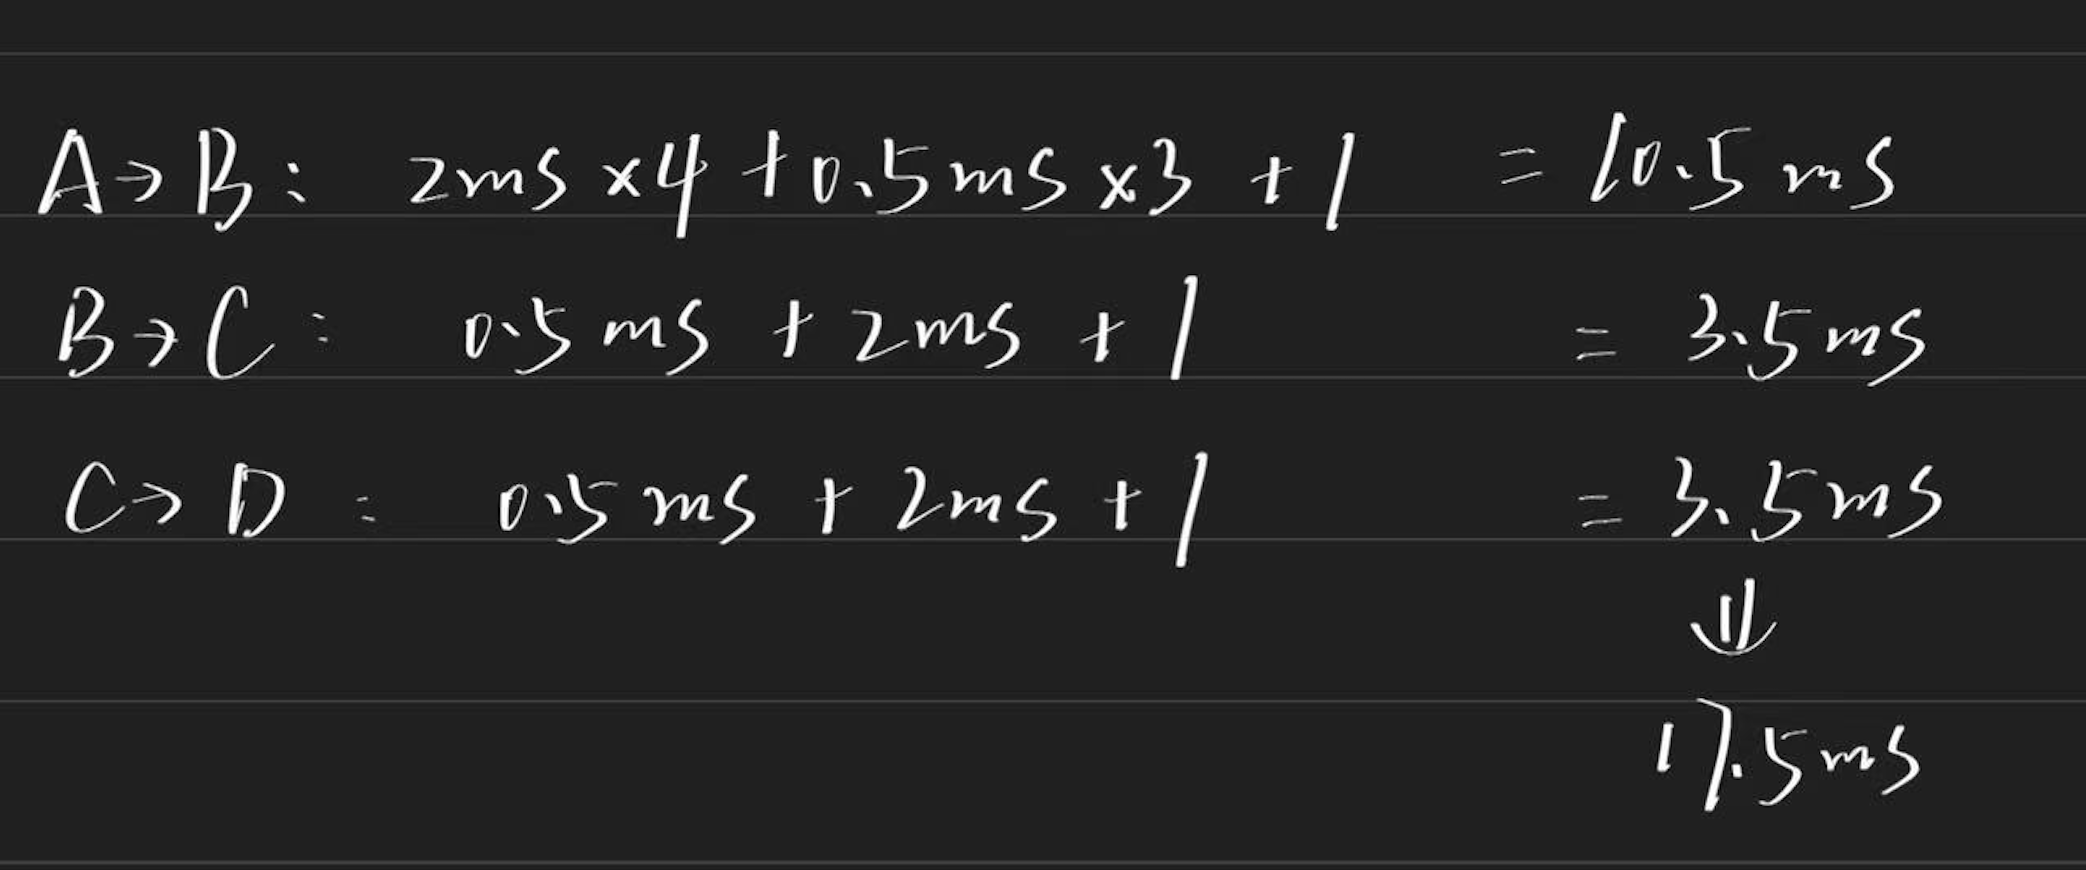 A→B: 2ms×4+0.5ms×3+1 = 10.5ms
B→C: 0.5ms+2ms+1 = 3.5ms
C→D: 0.5ms+2ms+1 = 3.5ms
⇓
17.5ms